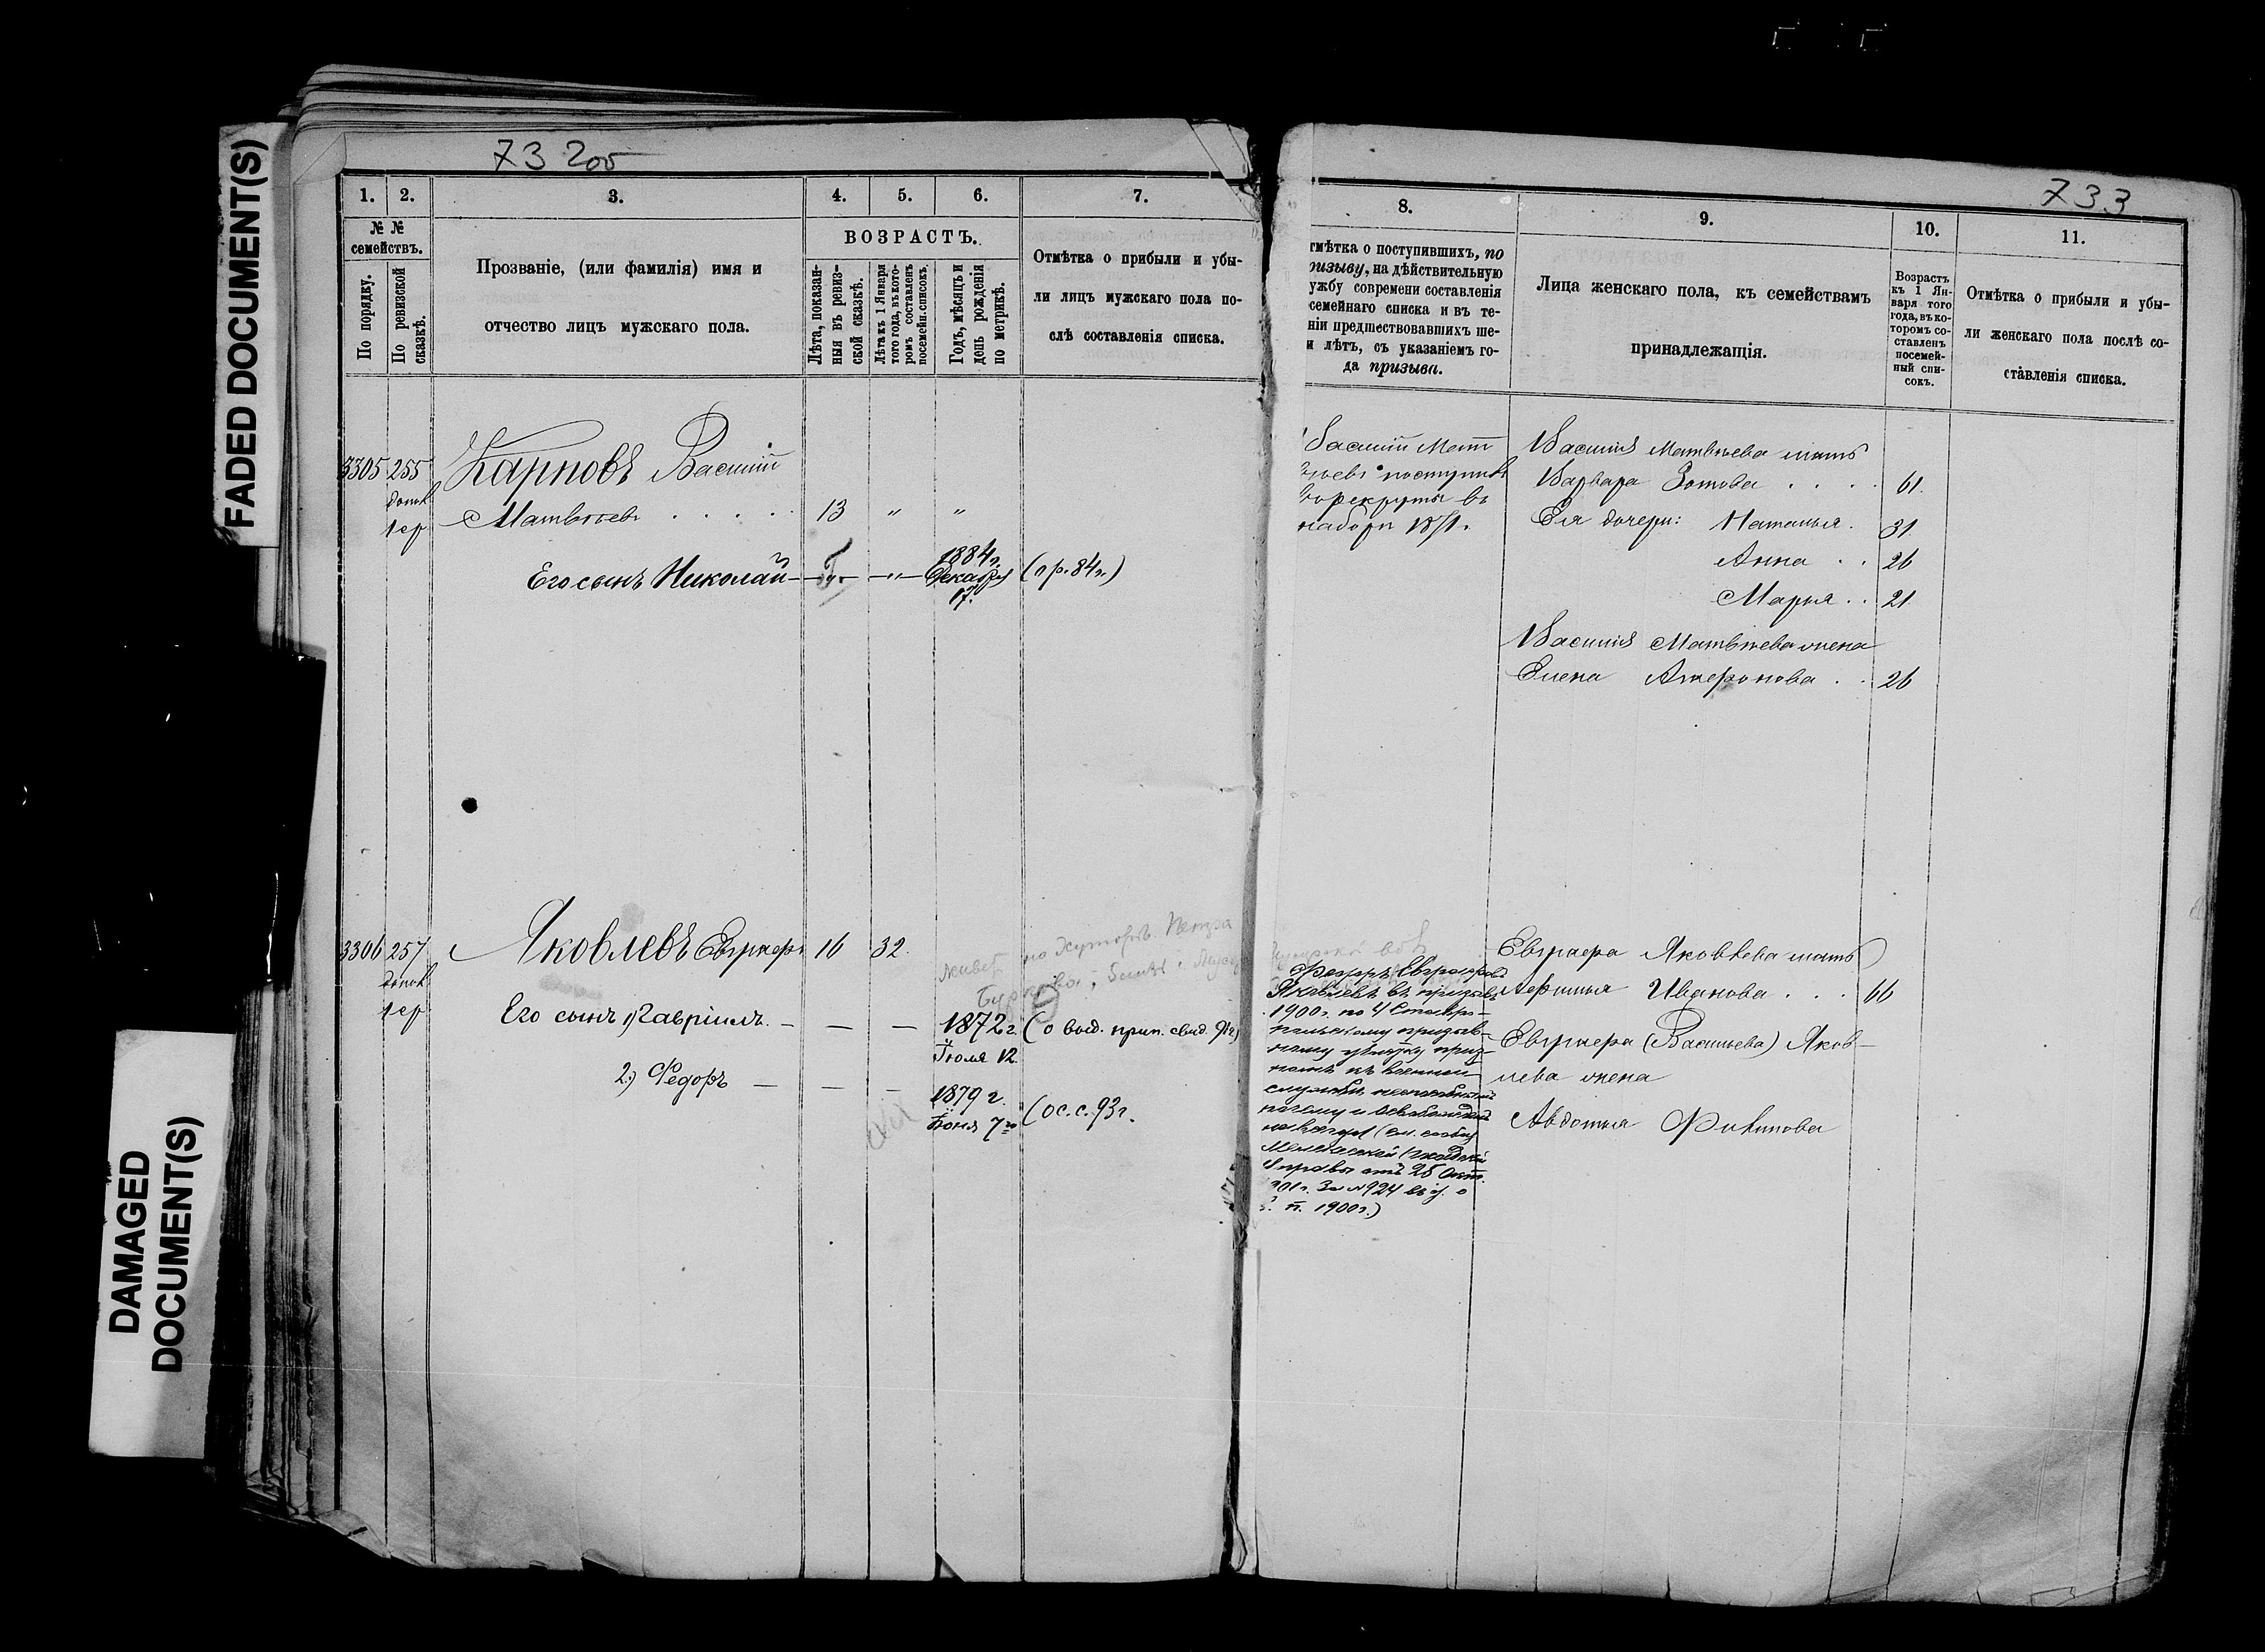 FADED DOCUMENT(S)
DAMAGED
DOCUMENT(S)
73 200
1. 2. 3. 4. 5. 6. 7.
№ №
семействъ.
По порядку.
По ревизской
сказкѣ.
Прозваніе, (или фамилія) имя и
отчество лицъ мужскаго пола.
ВОЗРАСТЪ.
Лѣта, показан-
ныя въ ревиз-
ской сказкѣ.
Лѣта къ 1 Января
того года, въ кото-
ромъ составленъ
посемейн. списокъ.
Годъ, мѣсяцъ и
день рожденія
по метрикѣ.
Отмѣтка о прибыли и убы-
ли лицъ мужскаго пола по-
слѣ составленія списка.
3305 255 Карповъ Василий
допол
1 ер Матвѣевъ . . . . . 13 " "
Его сынъ Николай — — " — 1884 г. Декабря 17. (пр. 84 г.)
3306 257 Яковлевъ Евграфъ 16 32.
допол
1 ер
живетъ на хуторѣ Петра
Его сынъ 1) Гавріилъ. — — — 1872 г. Іюля 12 (о выд. прип. свид. 91 г.)
2) Федоръ — — — 1879 г. Іюня 7го (ос. с. 93 г.
733
8. 9. 10. 11.
тмѣтка о поступившихъ, по
ризыву, на дѣйствительную
ужбу современи составленія
семейнаго списка и въ те-
ніи предшествовавшихъ ше-
и лѣтъ, съ указаніемъ го-
да призыва.
Лица женскаго пола, къ семействамъ
принадлежащія.
Возрастъ
къ 1 Ян-
варя того
года, въ ко-
торомъ со-
ставленъ
посемей-
ный спи-
сокъ.
Отмѣтка о прибыли и убы-
ли женскаго пола послѣ со-
ставленія списка.
Василий Мат
вѣевъ поступилъ
в рекруты въ
наборъ 1871 г.
Василія Матвѣева мать
Варвара Зотова . . . . 61.
Ея дочери: Наталья . 31.
Анна . . 26
Марья . . 21.
Василія Матвѣева жена
Елена . . 26
Федоръ Евграфовъ
Яковлевъ въ призывъ
1900 г. по 4 Ставро-
польскому призыв-
ному участку приз-
нанъ къ военной
службѣ неспособнымъ
почему и освобожденъ
навсегда (см. сообщ
Мелекесской Городской
Управы отъ 25 Окт.
901 г. За № 924 въ д. о
п. 1900 г.)
Евграфа Яковлева мать
Иванова . . . 66
Евграфа (Васильева) Яков-
лева жена
Авдотья Филипова